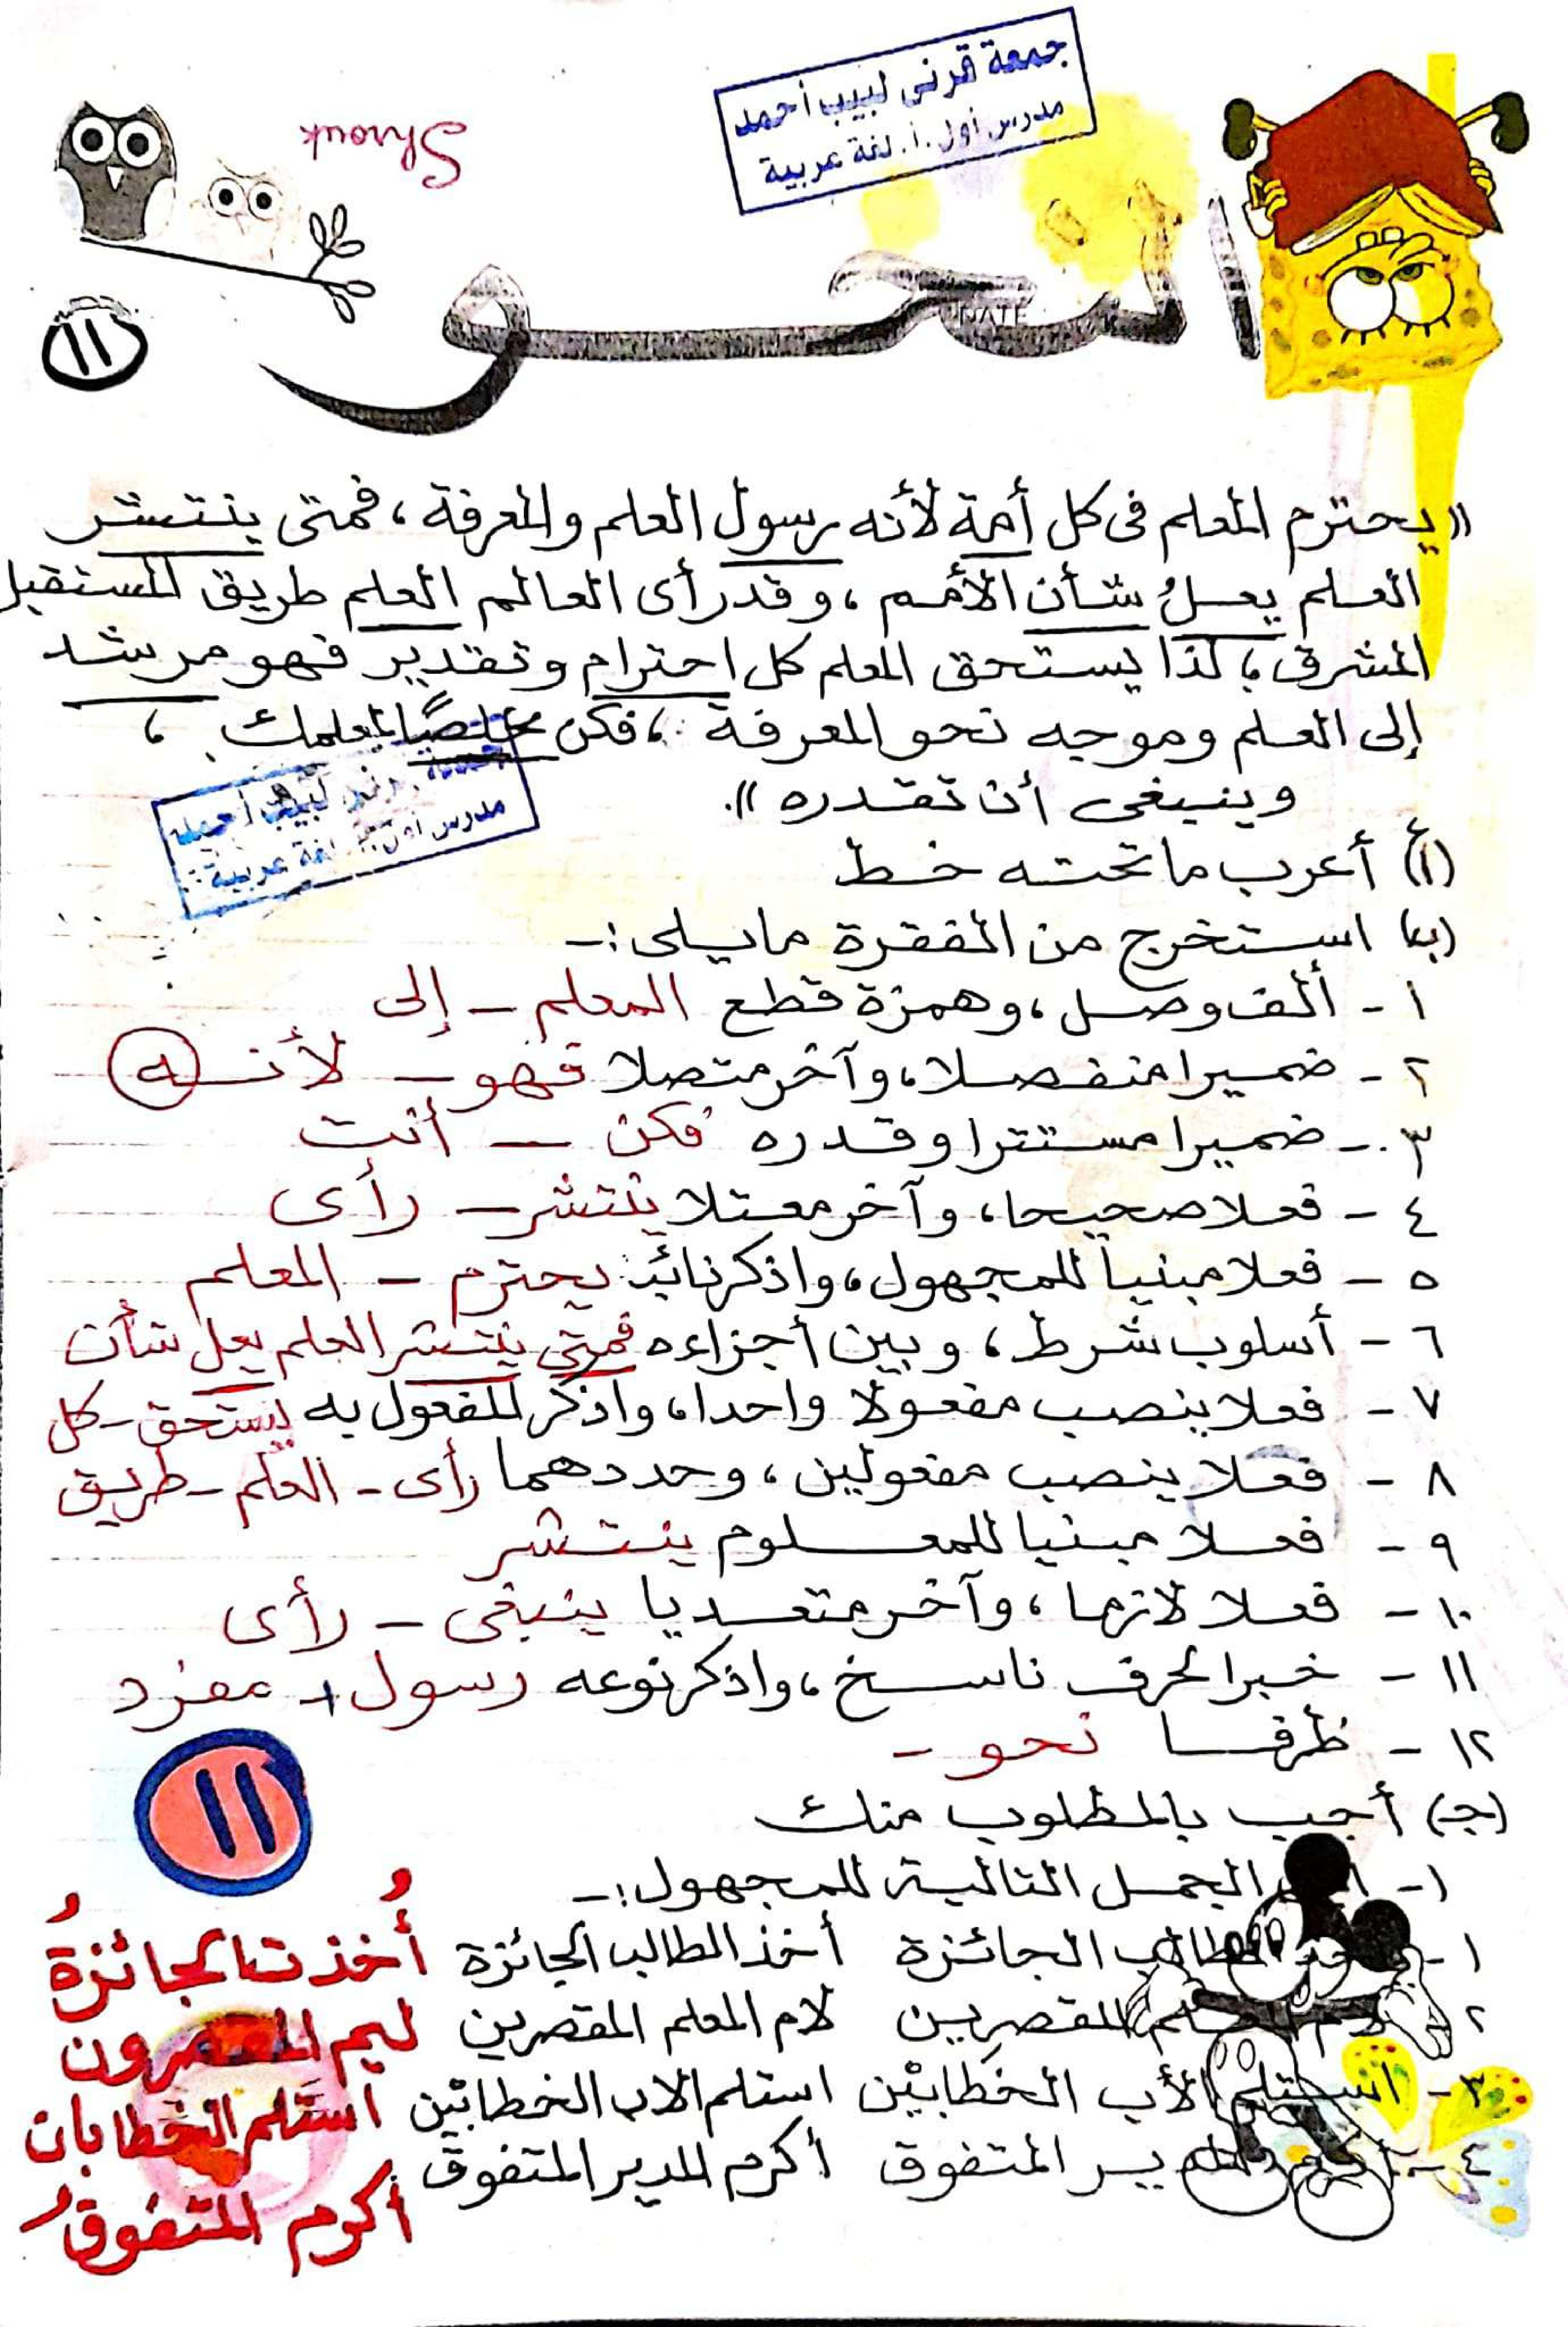 جمعة قرنى لبيب أحمد
مدرس أول .أ. لغة عربية
Shrouk
النحو
DATE
١١
"يحترم المعلم فى كل أمة لأنه رسول العلم والمعرفة ، فمتى ينتشر
العلم يعلُ شأن الأمم ، وقد رأى العالم العلم طريق المستقبل
المشرق ، لذا يستحق المعلم كل احترام وتقدير فهو مرشد
إلى العلم وموجه نحو المعرفة ، فكن مخلصًا لمعلمك ،
وينبغى أن تقدره".
جمعة قرنى لبيب أحمد
مدرس أول .أ. لغة عربية
(أ) أعرب ما تحته خط
(ب) استخرج من الفقرة ما يلى :-
١ - ألف وصل ، وهمزة قطع المعلم - إلى
٢ - ضميرا منفصلا ، وآخر متصلا فهو - لأنه
٣ - ضميرا مستترا وقدره فكن - أنت
٤ - فعلا صحيحا ، وآخر معتلا ينتشر - رأى
٥ - فعلا مبنياً للمجهول ، واذكر نائبه يحترم - المعلم
٦ - أسلوب شرط ، وبين أجزاءه فمتى ينتشر العلم يعل شأن
٧ - فعلا ينصب مفعولا واحدا ، واذكر المفعول به يستحق - كل
٨ - فعلا ينصب مفعولين ، وحددهما رأى - العلم - طريق
٩ - فعلا مبنيا للمعلوم ينتشر
١٠ - فعلا لازما ، وآخر متعديا ينبغى - رأى
١١ - خبرا لحرف ناسخ ، واذكر نوعه رسول - مفرد
١٢ - ظرفا نحو -
١١
(جـ) أجب بالمطلوب منك
١ - الجمل التالية للمجهول :-
١ - الطالب الجائزة أخذ الطالب الجائزة أُخذت الجائزةُ
٢ - لام المعلم المقصرين لام المعلم المقصرين ليم المقصرون
٣ - استلم الأب الخطابين استلم الاب الخطابين استلم الخطابان
٤ - أكرم المدير المتفوق أكرم المدير المتفوق أكرم المتفوقُ